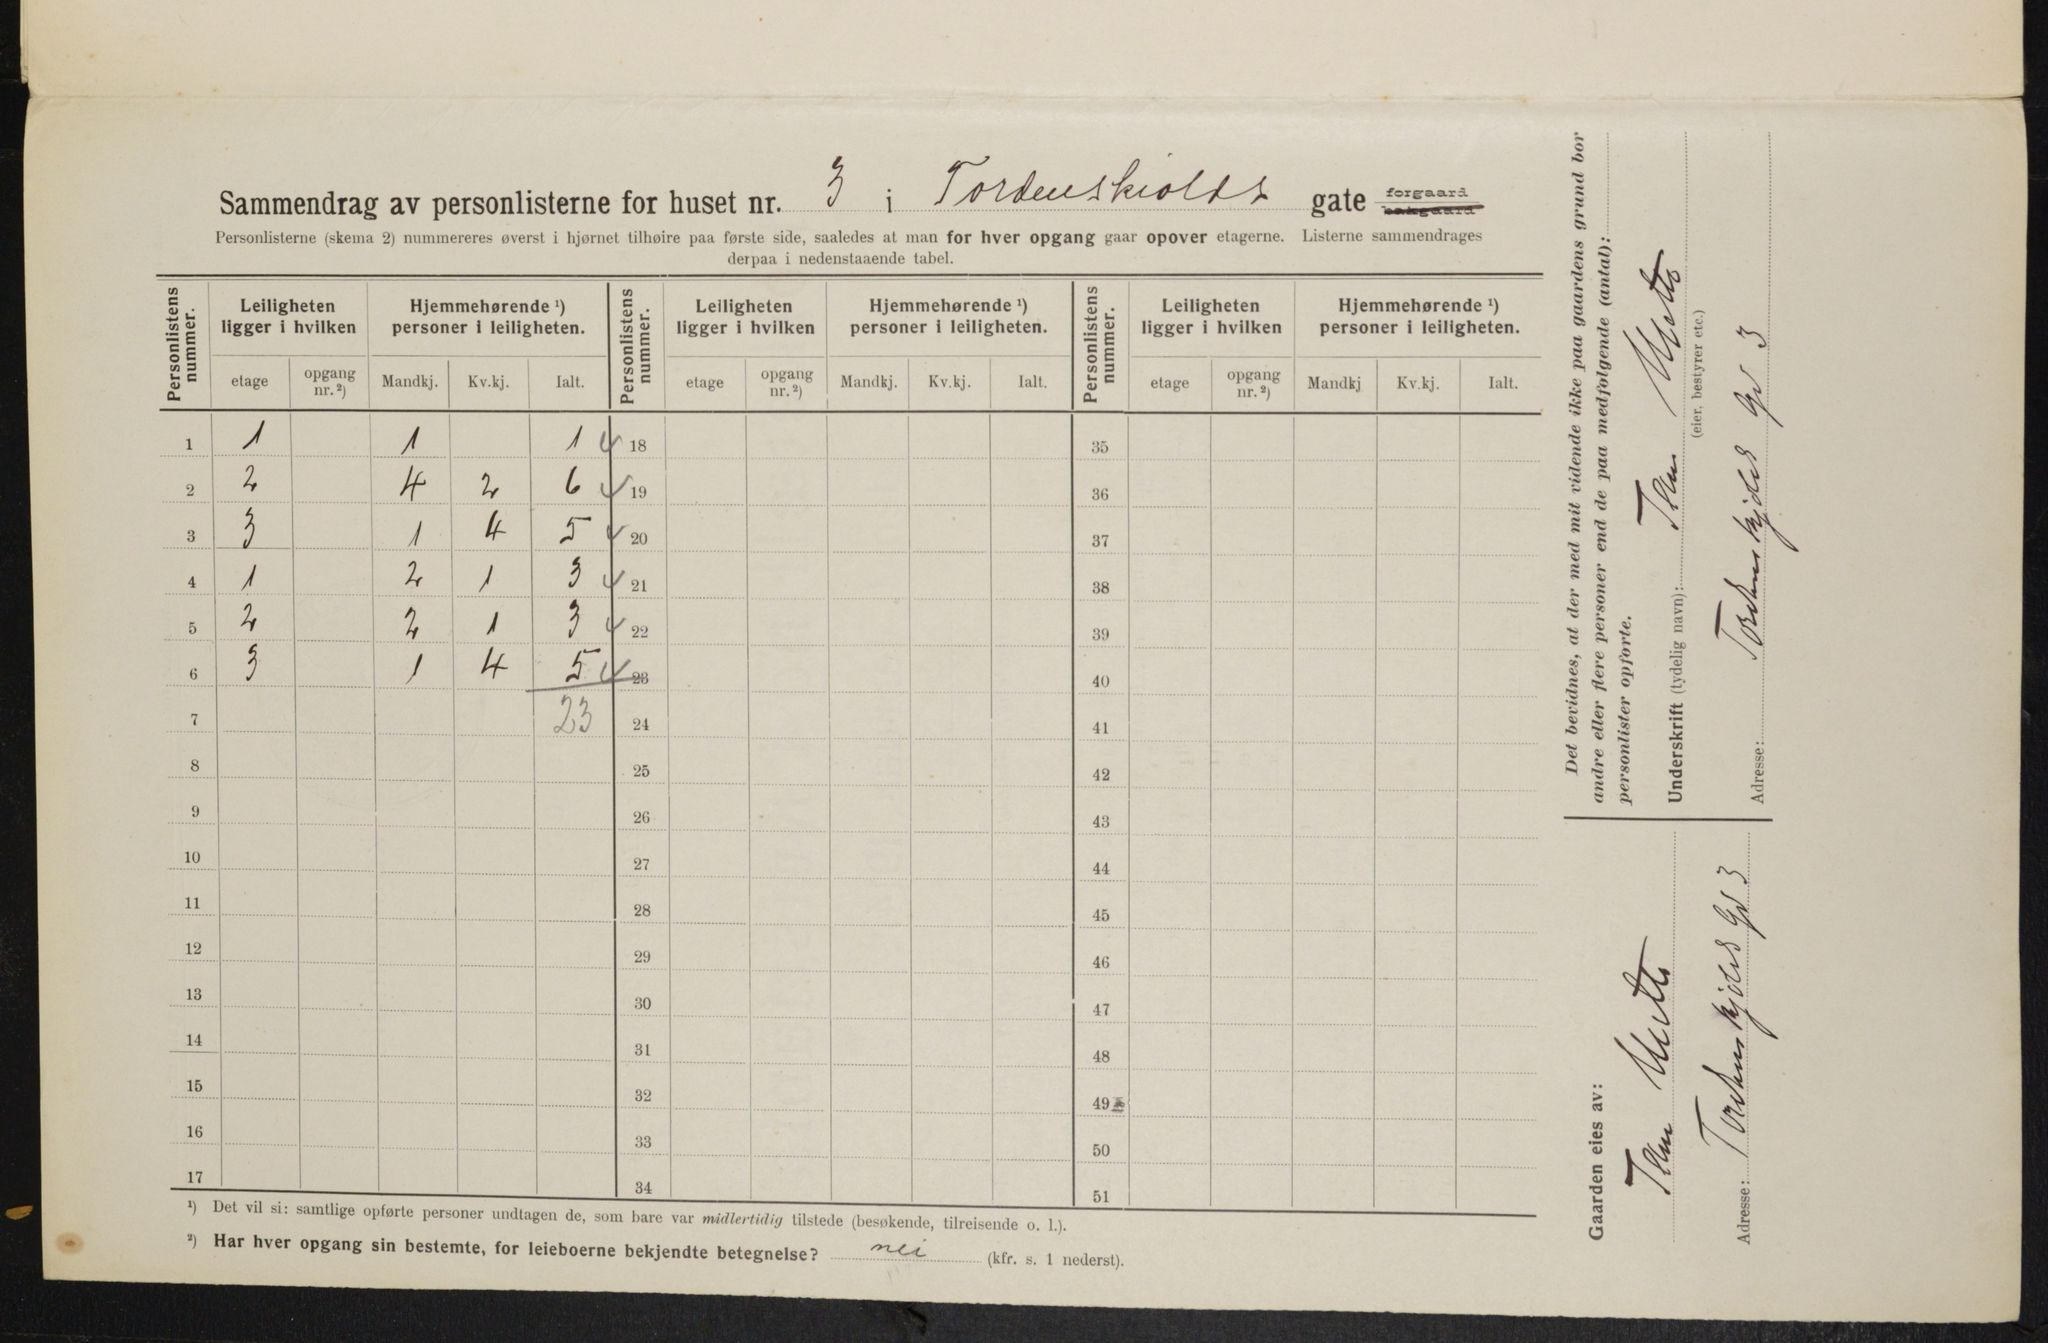 Sammendrag av personlisterne for huset nr. 3 i Tordenskiolds gate forgaard bakgaard
Personlisterne (skema 2) nummereres øverst i hjørnet tilhøire paa første side, saaledes at man for hver opgang gaar opover etagerne. Listerne sammendrages
derpaa i nedenstaaende tabel.
Personlistens nummer. Leiligheten ligger i hvilken Hjemmehørende ¹) personer i leiligheten. Personlistens nummer. Leiligheten ligger i hvilken Hjemmehørende ¹) personer i leiligheten. Personlistens nummer. Leiligheten ligger i hvilken Hjemmehørende ¹) personer i leiligheten.
etage opgang nr. ²) Mandkj. Kv.kj. Ialt. etage opgang nr. ²) Mandkj. Kv.kj. Ialt. etage opgang nr. ²) Mandkj Kv.kj. Ialt.
1 1 1 1 18 35
2 2 4 2 6 19 36
3 3 1 4 5 20 37
4 1 2 1 3 21 38
5 2 2 1 3 22 39
6 3 1 4 5 23 40
7 23 24 41
8 25 42
9 26 43
10 27 44
11 28 45
12 29 46
13 30 47
14 31 48
15 32 49
16 33 50
17 34 51
¹) Det vil si: samtlige opførte personer undtagen de, som bare var midlertidig tilstede (besøkende, tilreisende o. l.).
²) Har hver opgang sin bestemte, for leieboerne bekjendte betegnelse? nei (kfr. s. 1 nederst).
Det bevidnes, at der med mit vidende ikke paa gaardens grund bor
andre eller flere personer end de paa medfølgende (antal):
personlister opførte.
Underskrift (tydelig navn):
(eier, bestyrer etc.)
Adresse: Tordenskjolds Gd 3
Gaarden eies av:
Adresse: Tordenskjolds Gd 3